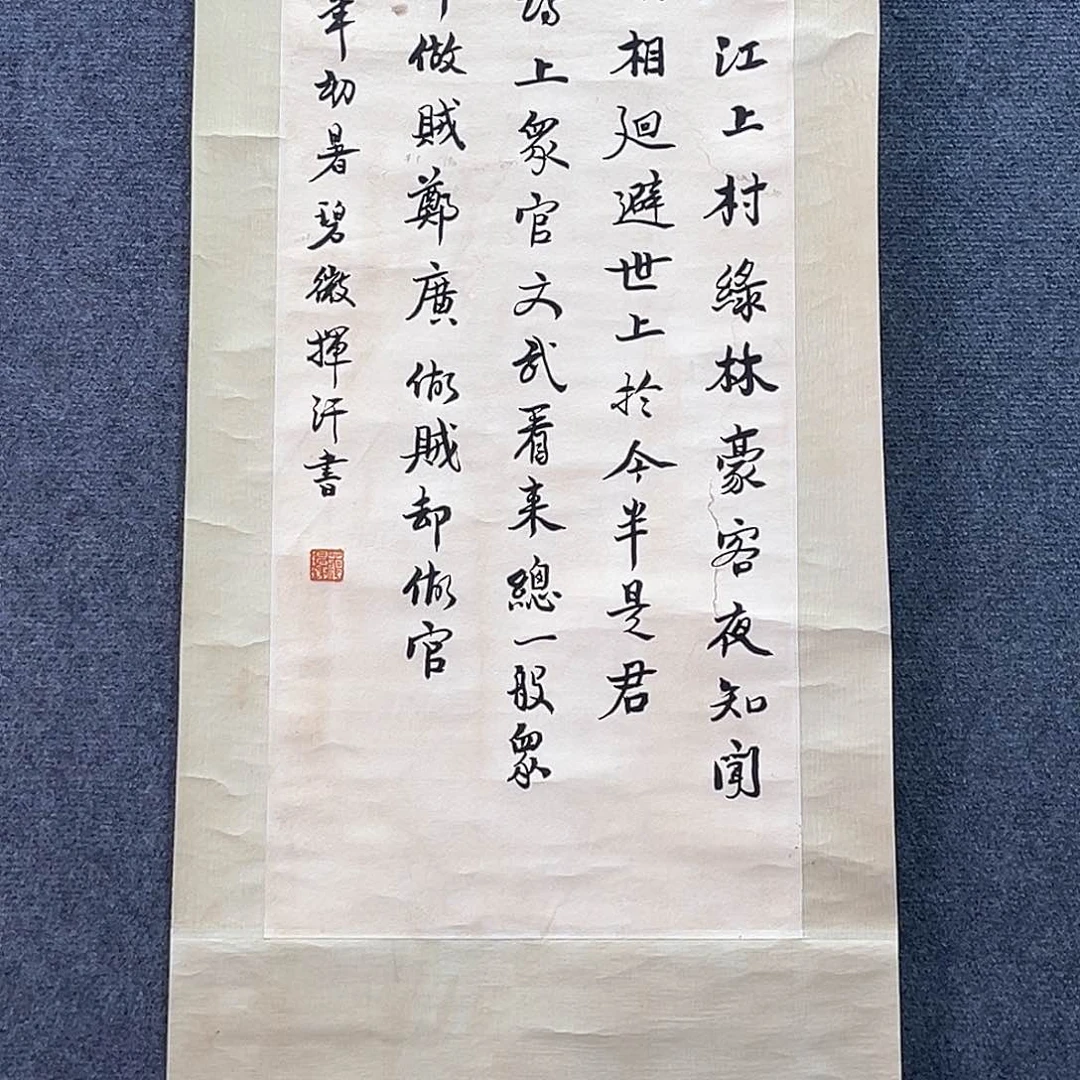 江上村綠林豪客夜知聞
相迴避世上於今半是君
上眾官文武看來總一般眾
做賊鄭廣做賊却做官
年初暑碧微揮汗書